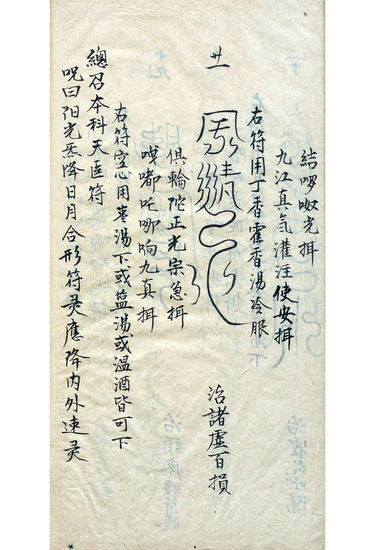 結啰光揖
九江真気灌注使安揖
右符用丁香霍香湯冷服
廿一
治諸虛百損
俱輪陀正光宗急揖
嘟吒哪响九真揖
右符空心用枣湯下或盐湯或温酒皆可下
總召本科天医符
呪曰阳光炁降日月合形符灵應降内外速灵